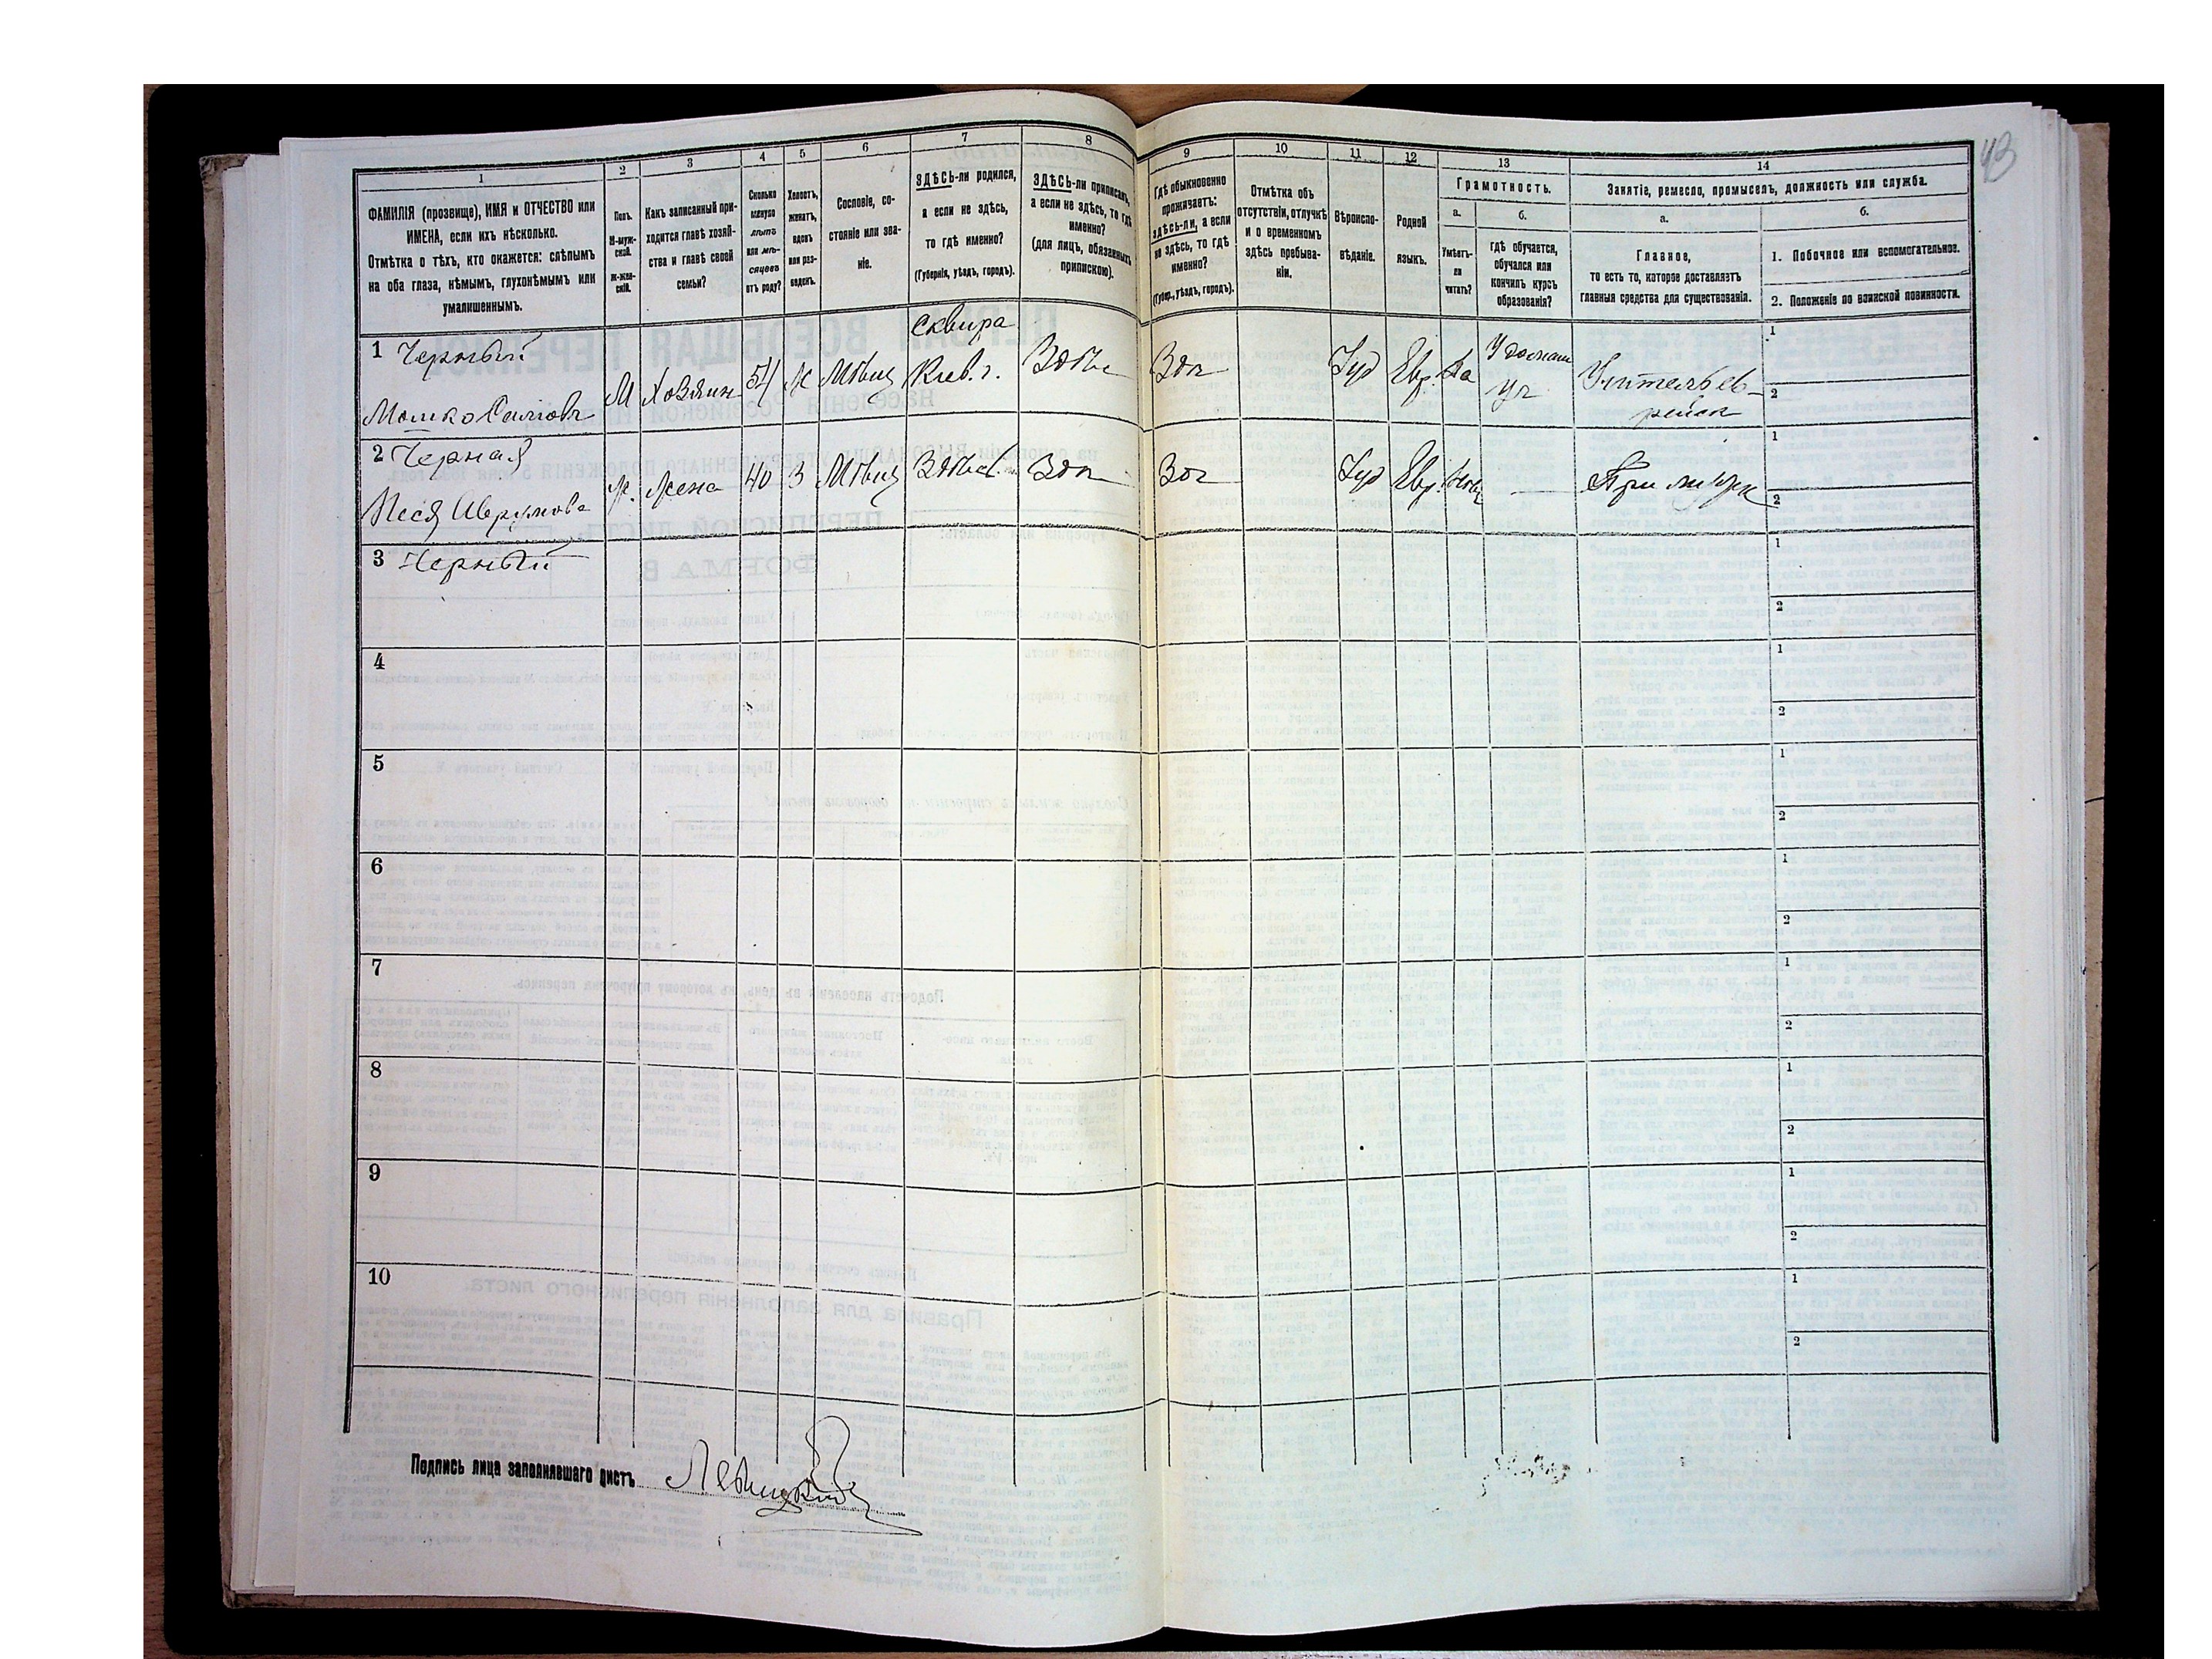 43
1 2 3 4 5 6 7 8 9 10 11 12 13 14
ФАМИЛІЯ (прозвище), ИМЯ и ОТЧЕСТВО или
ИМЕНА, если ихъ нѣсколько.
Отмѣтка о тѣхъ, кто окажется: слѣпымъ
на оба глаза, нѣмымъ, глухонѣмымъ или
умалишеннымъ.
Полъ.
М-муж-
ской.
Ж-жен-
скій.
Какъ записанный при-
ходится главѣ хозяй-
ства и главѣ своей
семьи?
Сколько
минуло
лѣтъ
или мѣ-
сяцевъ
отъ роду?
Холостъ,
женатъ,
вдовъ
или раз-
веденъ.
Сословіе, со-
стояніе или зва-
ніе.
ЗДѢСЬ-ли родился,
а если не здѣсь,
то гдѣ именно?
(Губернія, уѣздъ, городъ).
ЗДѢСЬ-ли приписанъ,
а если не здѣсь, то гдѣ
именно?
(для лицъ, обязанныхъ
припискою).
Гдѣ обыкновенно
проживаетъ:
здѣсь-ли, а если
не здѣсь, то гдѣ
именно?
(Губер., уѣздъ, городъ).
Отмѣтка объ
отсутствіи, отлучкѣ
и о временномъ
здѣсь пребыва-
ніи.
Вѣроиспо-
вѣданіе.
Родной
языкъ.
Грамотность.
а.
Умѣетъ-
ли
читать?
б.
гдѣ обучается,
обучался или
кончилъ курсъ
образованія?
Занятіе, ремесло, промыселъ, должность или служба.
а.
Главное,
то есть то, которое доставляетъ
главныя средства для существованія.
б.
1. Побочное или вспомогательное.
2. Положеніе по воинской повинности.
1 Черный
Мошко
М Хозяин 54 Ж Мѣщ
Сквира
Киев. г.
Здѣсь Зд Іуд Евр. Да
Учитель ев-
рейск
1
2
2 Черная
Песя Аврумова
Ж. Жена 40 З Мѣщ Здѣсь Зд Зд Іуд Евр. — При муже
1
2
3 Черный
1
2
4
1
2
5
1
2
6
1
2
7
1
2
8
1
2
9
1
2
10
1
2
Подпись лица заполнявшаго листъ Левицкій